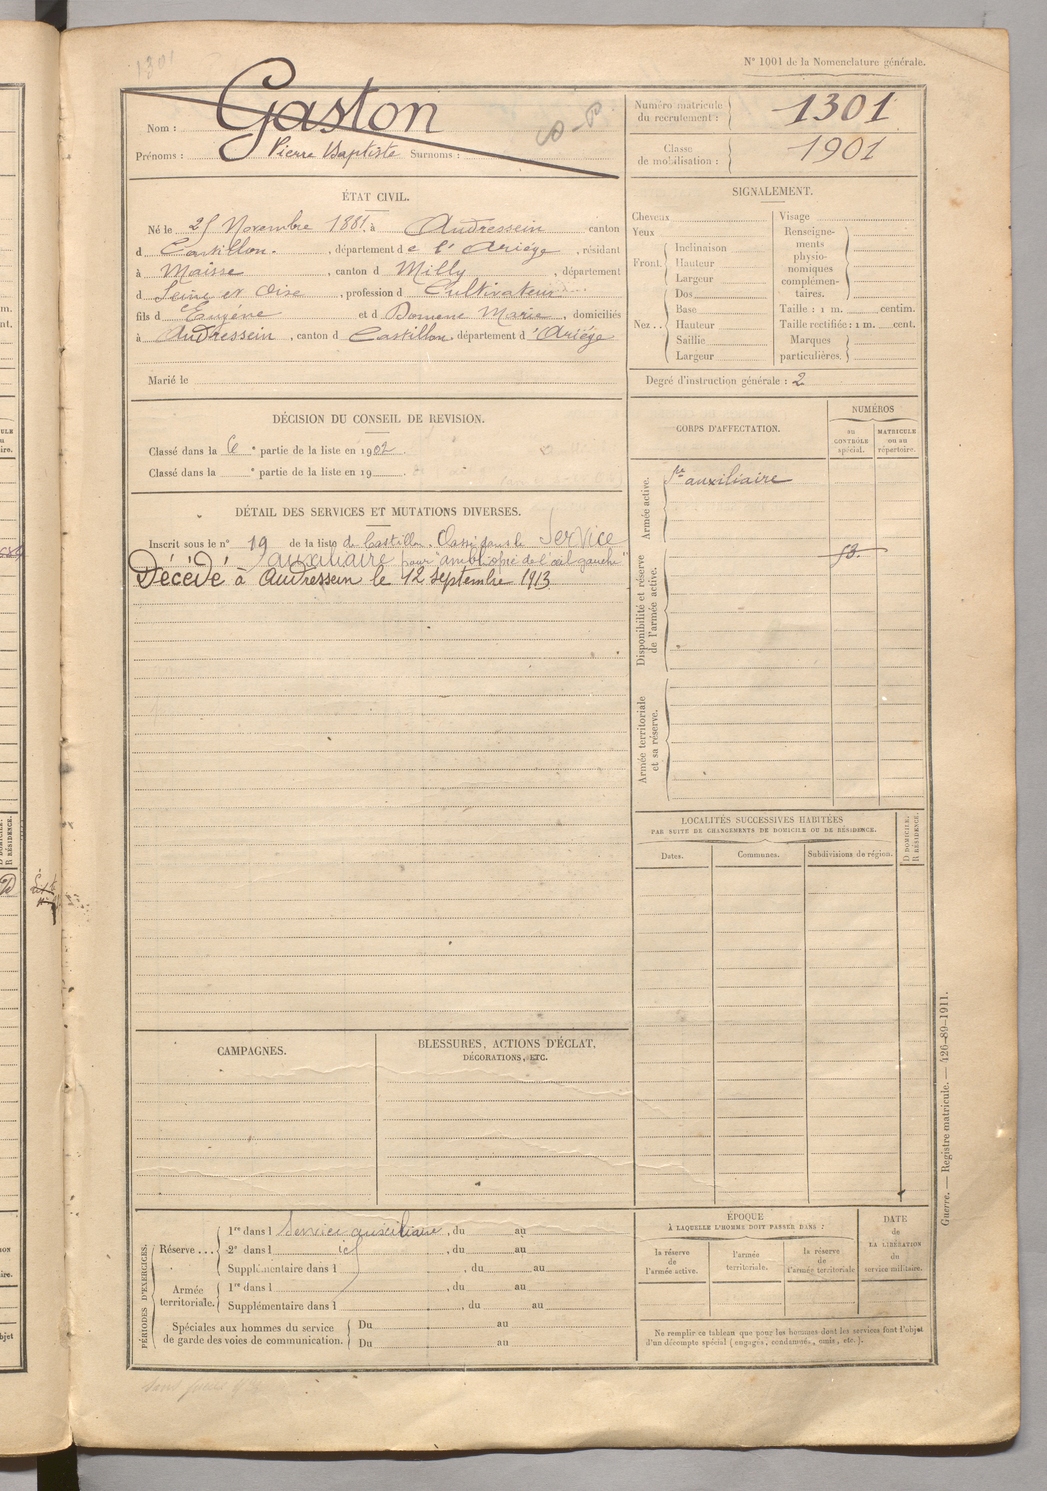 1301
N° 1001 de la Nomenclature générale.
Nom : Gaston
Prénoms : Pierre Baptiste Surnoms :
Numéro matricule du recrutement : 1301
Classe de mobilisation : 1901
ÉTAT CIVIL.
Né le 25 Novembre 1881, à Audressein canton
d Castillon, département de l'Ariège, résidant
à Maisse, canton d Milly, département
d Seine et Oise, profession d Cultivateur
fils d Eugène et d Domenc Marie, domiciliés
à Audressein, canton d Castillon, département d'Ariége
Marié le
SIGNALEMENT.
Cheveux
Yeux
Front. Inclinaison
Hauteur
Largeur
Nez .. Dos
Base
Hauteur
Saillie
Largeur
Visage
Renseigne-
ments
physio-
nomiques
complémen-
taires.
Taille : 1 m. centim.
Taille rectifiée : 1 m. cent.
Marques
particulières.
Degré d'instruction générale : 2
DÉCISION DU CONSEIL DE REVISION.
Classé dans la 6 e partie de la liste en 1902.
Classé dans la e partie de la liste en 19
DÉTAIL DES SERVICES ET MUTATIONS DIVERSES.
Inscrit sous le n° 19 de la liste de Castillon. Classé dans le Service
auxiliaire pour "ambliopie de l'œil gauche"
Décédé à Audressein le 12 septembre 1913
CORPS D'AFFECTATION.
NUMÉROS
au
CONTRÔLE
spécial.
MATRICULE
ou au
répertoire.
Armée active.
Sce auxiliaire
Disponibilité et réserve
de l'armée active.
Armée territoriale
et sa réserve.
LOCALITÉS SUCCESSIVES HABITÉES
PAR SUITE DE CHANGEMENTS DE DOMICILE OU DE RÉSIDENCE.
Dates.
Communes.
Subdivisions de région.
D DOMICILE.
R RÉSIDENCE.
CAMPAGNES.
BLESSURES, ACTIONS D'ÉCLAT,
DÉCORATIONS, ETC.
PÉRIODES D'EXERCICES.
Réserve ... 1re dans l Service auxiliaire, du au
2e dans l , du au
Supplémentaire dans l , du au
Armée
territoriale. 1re dans l , du au
Supplémentaire dans l , du au
Spéciales aux hommes du service
de garde des voies de communication. Du au
Du au
ÉPOQUE
À LAQUELLE L'HOMME DOIT PASSER DANS :
la réserve
de
l'armée active.
l'armée
territoriale.
la réserve
de
l'armée territoriale
DATE
de
LA LIBÉRATION
du
service militaire.
Ne remplir ce tableau que pour les hommes dont les services font l'objet
d'un décompte spécial (engagés, condamnés, omis, etc.).
Guerre. — Registre matricule. — 426-89-1911.